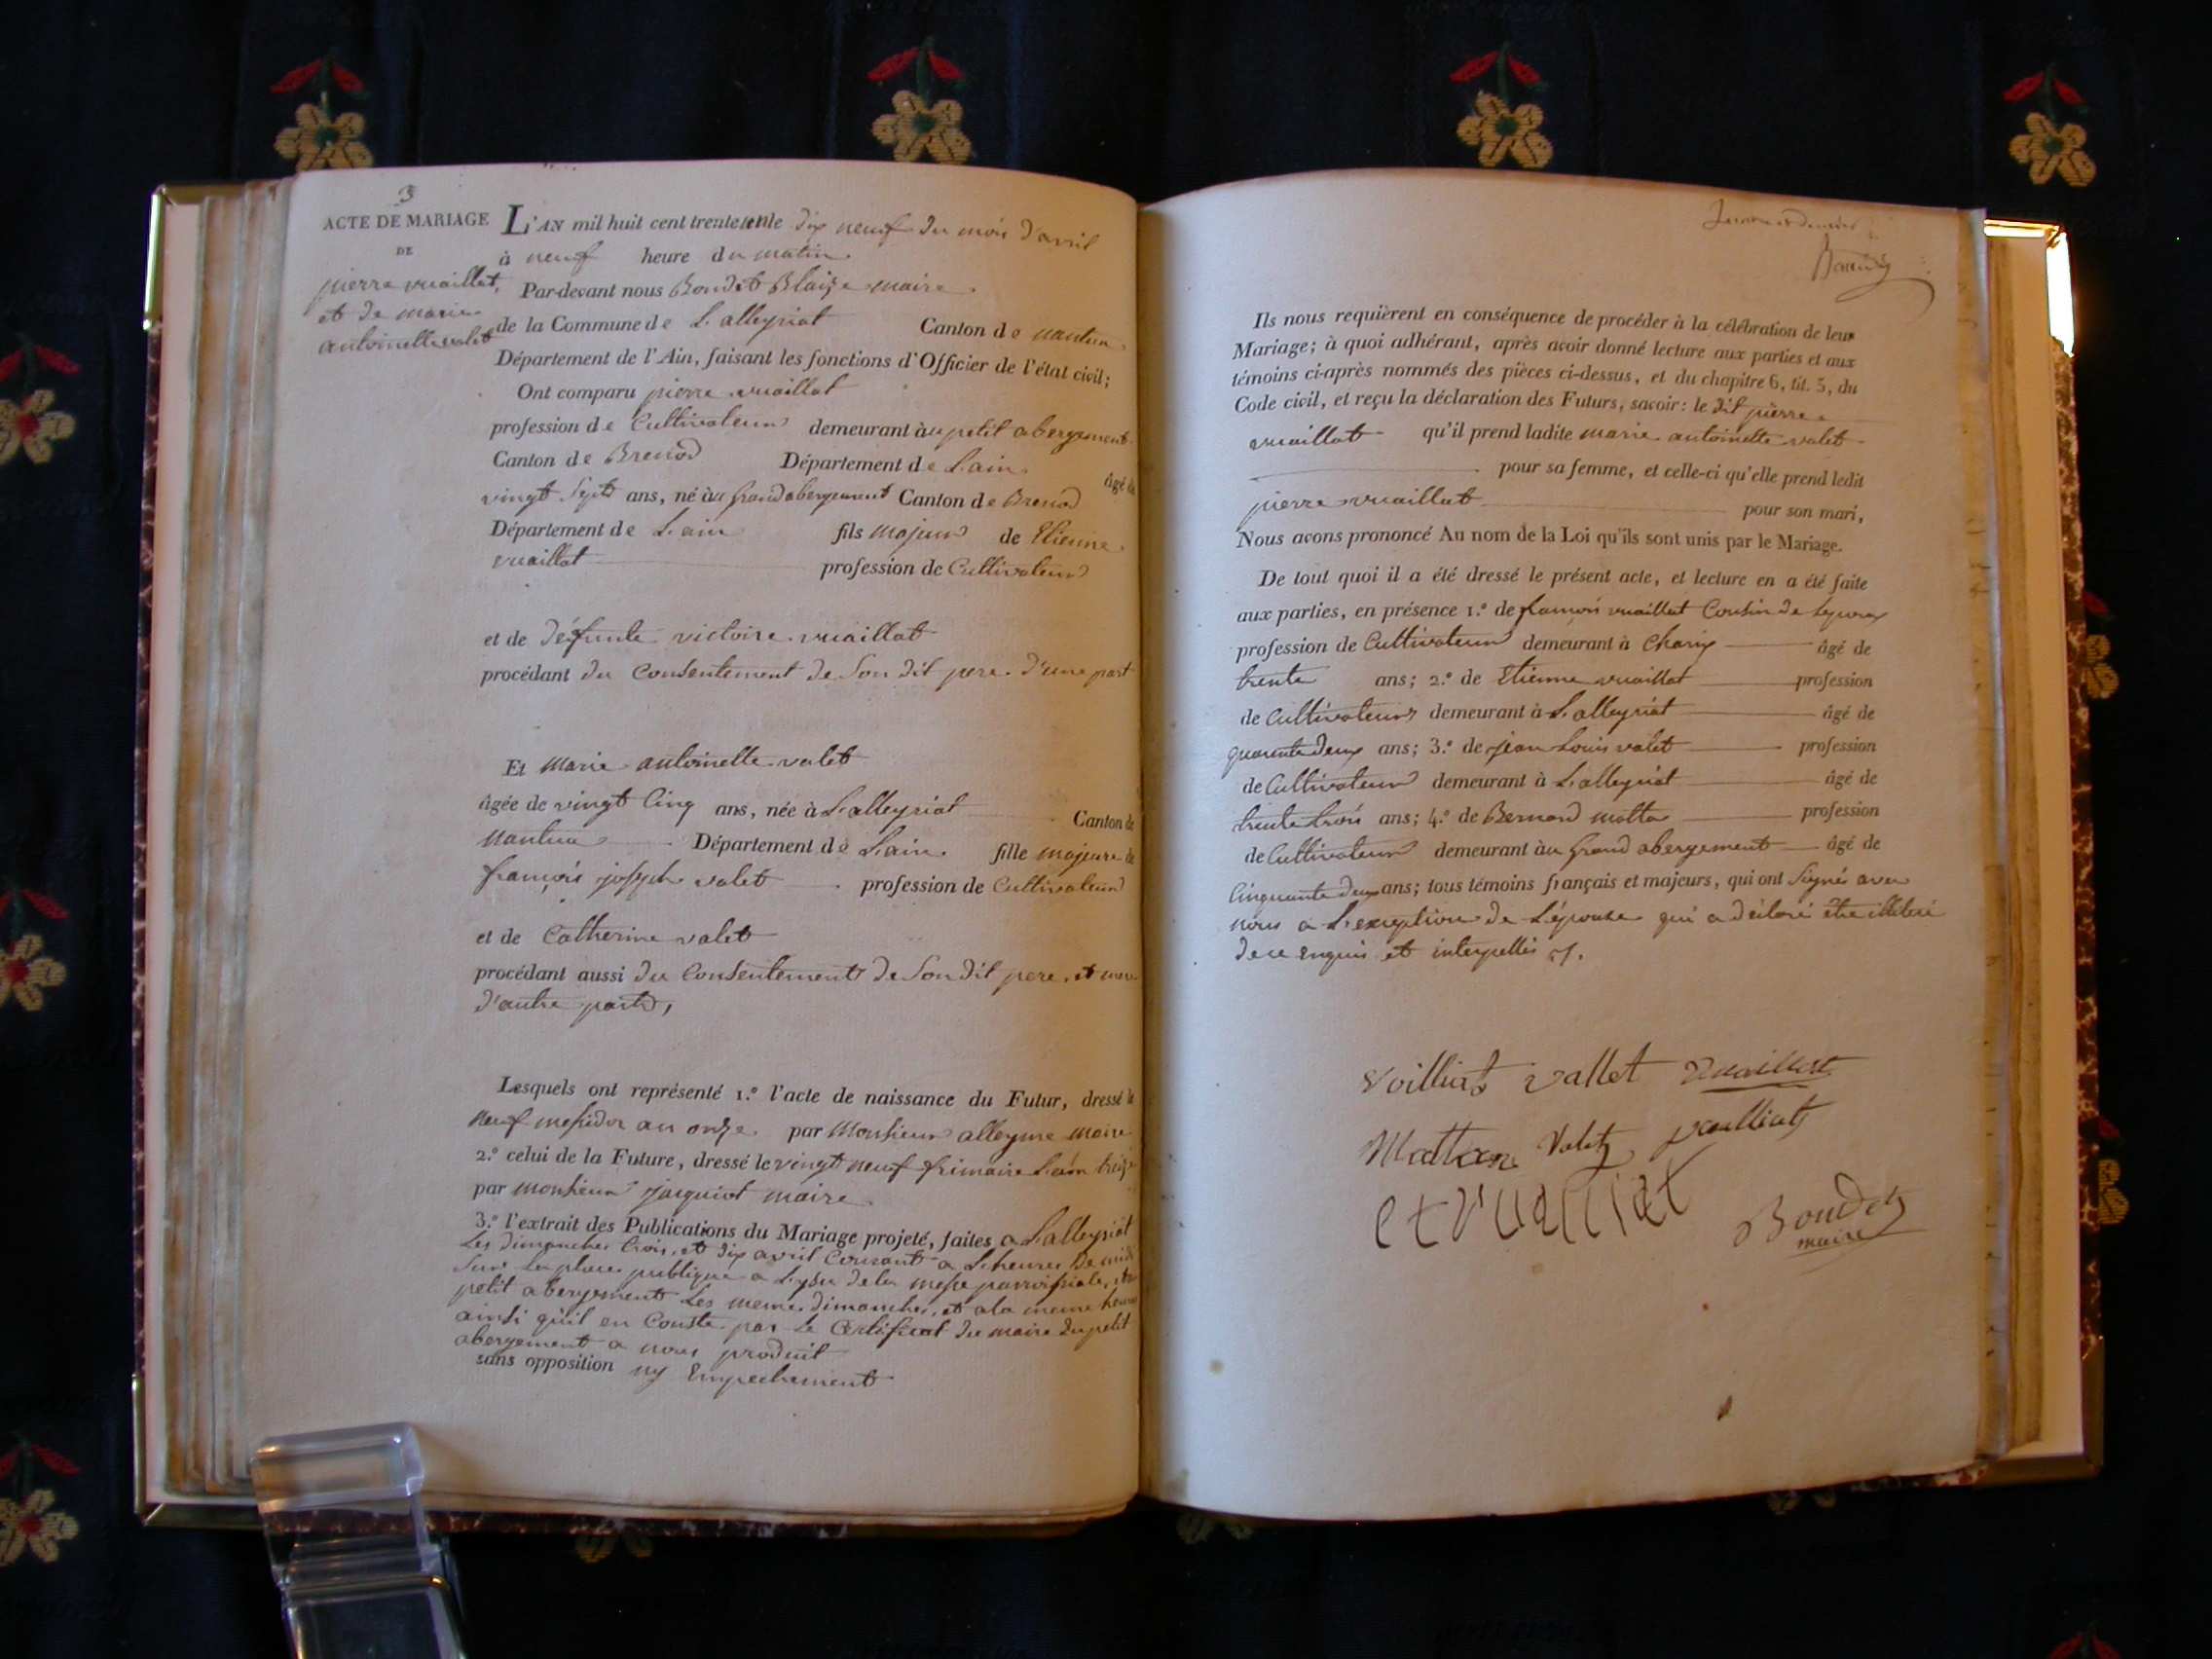 3
ACTE DE MARIAGE
DE
pierre vuaillat,
et de marie
antoinette valet
L'AN mil huit cent trente le dix neuf du mois d'avril
à neuf heure du matin.
Par-devant nous Bondet Blaize maire
de la Commune de Lalleyriat Canton de nantua
Département de l'Ain, faisant les fonctions d'Officier de l'état civil;
Ont comparu pierre vuaillat
profession de Cultivateur demeurant àu petit abergement
Canton de Brenod Département de L'ain âgé de
vingt Sept ans, né àu grand abergement Canton de Brenod
Département de L'ain fils majeur de Etienne
vuaillat profession de Cultivateur
et de défunte victoire vuaillat
procédant du Consentement de Son dit pere. d'une part
Et marie antoinette valet
âgée de vingt Cinq ans, née à Lalleyriat Canton de
nantua Département de L'ain fille majeure de
françois joseph valet profession de Cultivateur
et de Catherine valet
procédant aussi du Consentement de Son dit pere, et mere
d'autre part,
Lesquels ont représenté 1.º l'acte de naissance du Futur, dressé le
neuf messidor an onze par Monsieur alleyme maire
2.º celui de la Future, dressé le vingt neuf frimaire L'an treize
par monsieur jacquiot maire
3.º l'extrait des Publications du Mariage projeté, faites a Lalleyriat
Les dimanches trois, et dix avril Courant a L'heure De midi
Sur La place publique a L'yssu de la messe parroissiale, et au
petit abergement Les memes dimanches, et a la meme heure
ainsi qu'il en Conste par Le Certificat du maire du petit
abergement a nous produit
sans opposition ny Empechement
Ils nous requièrent en conséquence de procéder à la célébration de leur
Mariage; à quoi adhérant, après avoir donné lecture aux parties et aux
témoins ci-après nommés des pièces ci-dessus, et du chapitre 6, tit. 5, du
Code civil, et reçu la déclaration des Futurs, savoir: le dit pierre
vuaillat qu'il prend ladite marie antoinette valet
pour sa femme, et celle-ci qu'elle prend ledit
pierre vuaillat pour son mari,
Nous avons prononcé Au nom de la Loi qu'ils sont unis par le Mariage.
De tout quoi il a été dressé le présent acte, et lecture en a été faite
aux parties, en présence 1.º de françois vuaillat Cousin de L'epoux
profession de Cultivateur demeurant à Charix âgé de
trente ans; 2.º de Etienne vuaillat profession
de Cultivateur demeurant à Lalleyriat âgé de
quarente deux ans; 3.º de jean Louis valet profession
de Cultivateur demeurant à Lalleyriat âgé de
trente trois ans; 4.º de Bernard mottan profession
de Cultivateur demeurant àu grand abergement âgé de
Cinquante deux ans; tous témoins français et majeurs, qui ont Signés avec
nous a L'exception de L'épouse qui a déclaré être illetéré
de ce enquis et interpellés
Voilliat vallet Vuaillat
Mattan Valet
et vualliat Bondet
maire